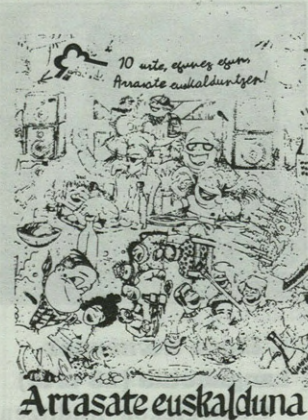 10 urte, egunez egun,
Arrasate euskalduntzen!
Arrasate euskalduna